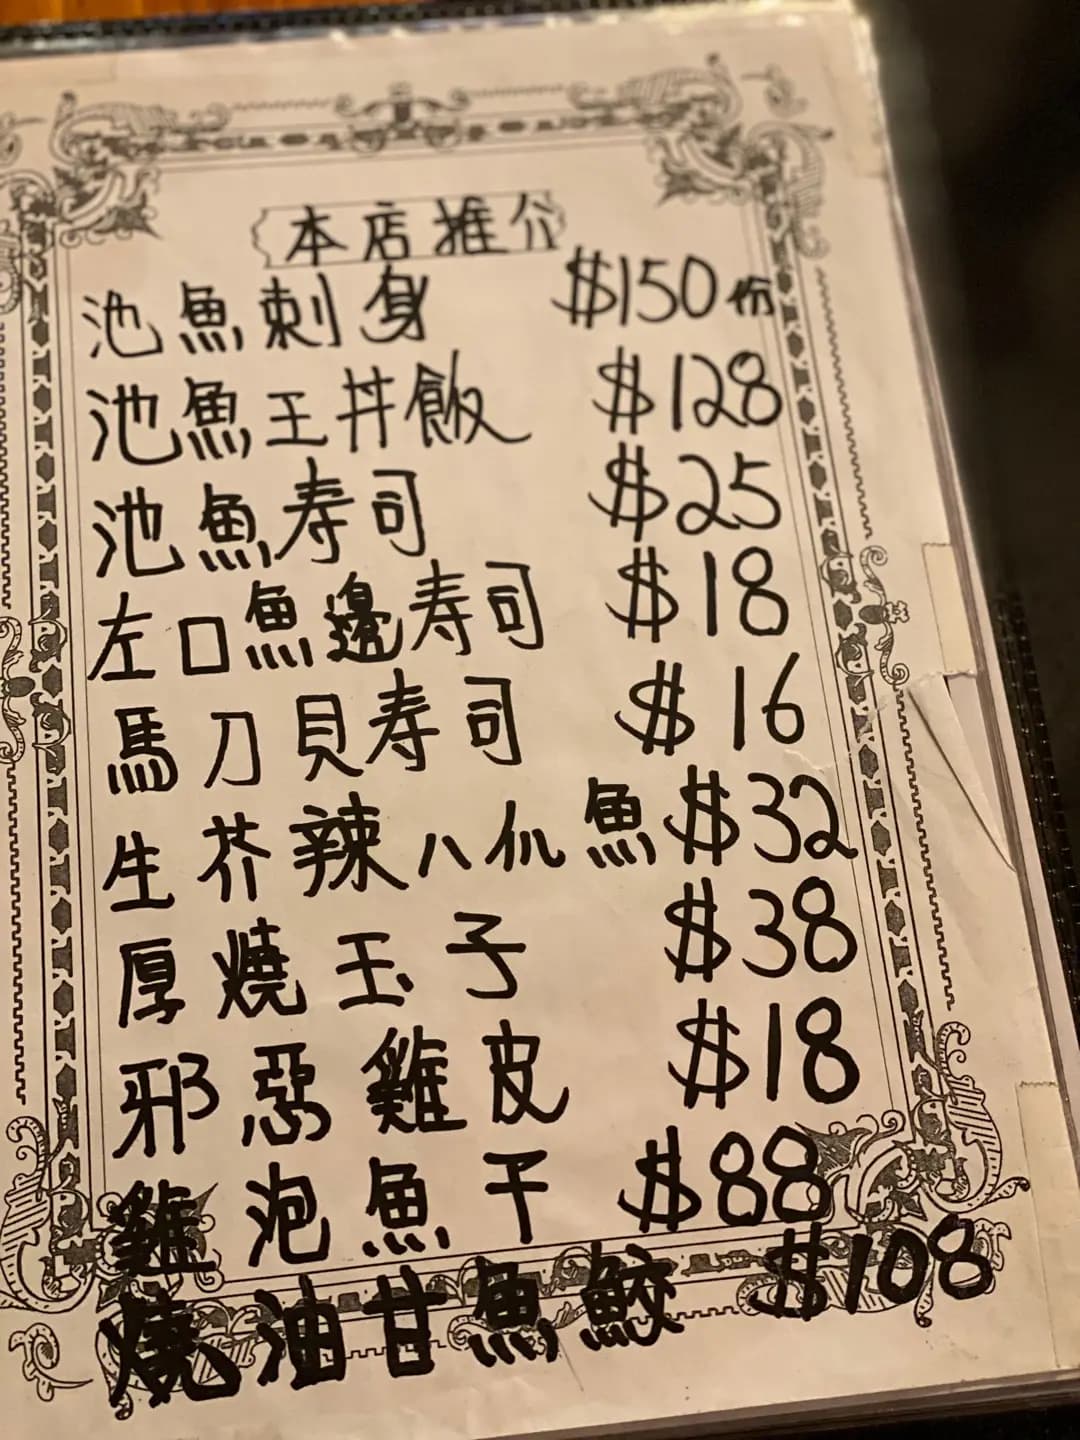 本店推介
池魚刺身 $150份
池魚王丼飯 $128
池魚寿司 $25
左口魚邊寿司 $18
馬刀貝寿司 $16
生芥辣八爪魚 $32
厚燒玉子 $38
邪惡雞皮 $18
雞泡魚干 $88
燒油甘魚鮫 $108